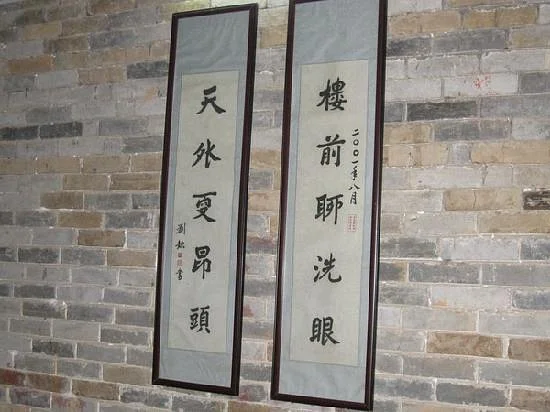 樓前聊洗眼
二〇〇一年八月
天外更昂頭
劉松書